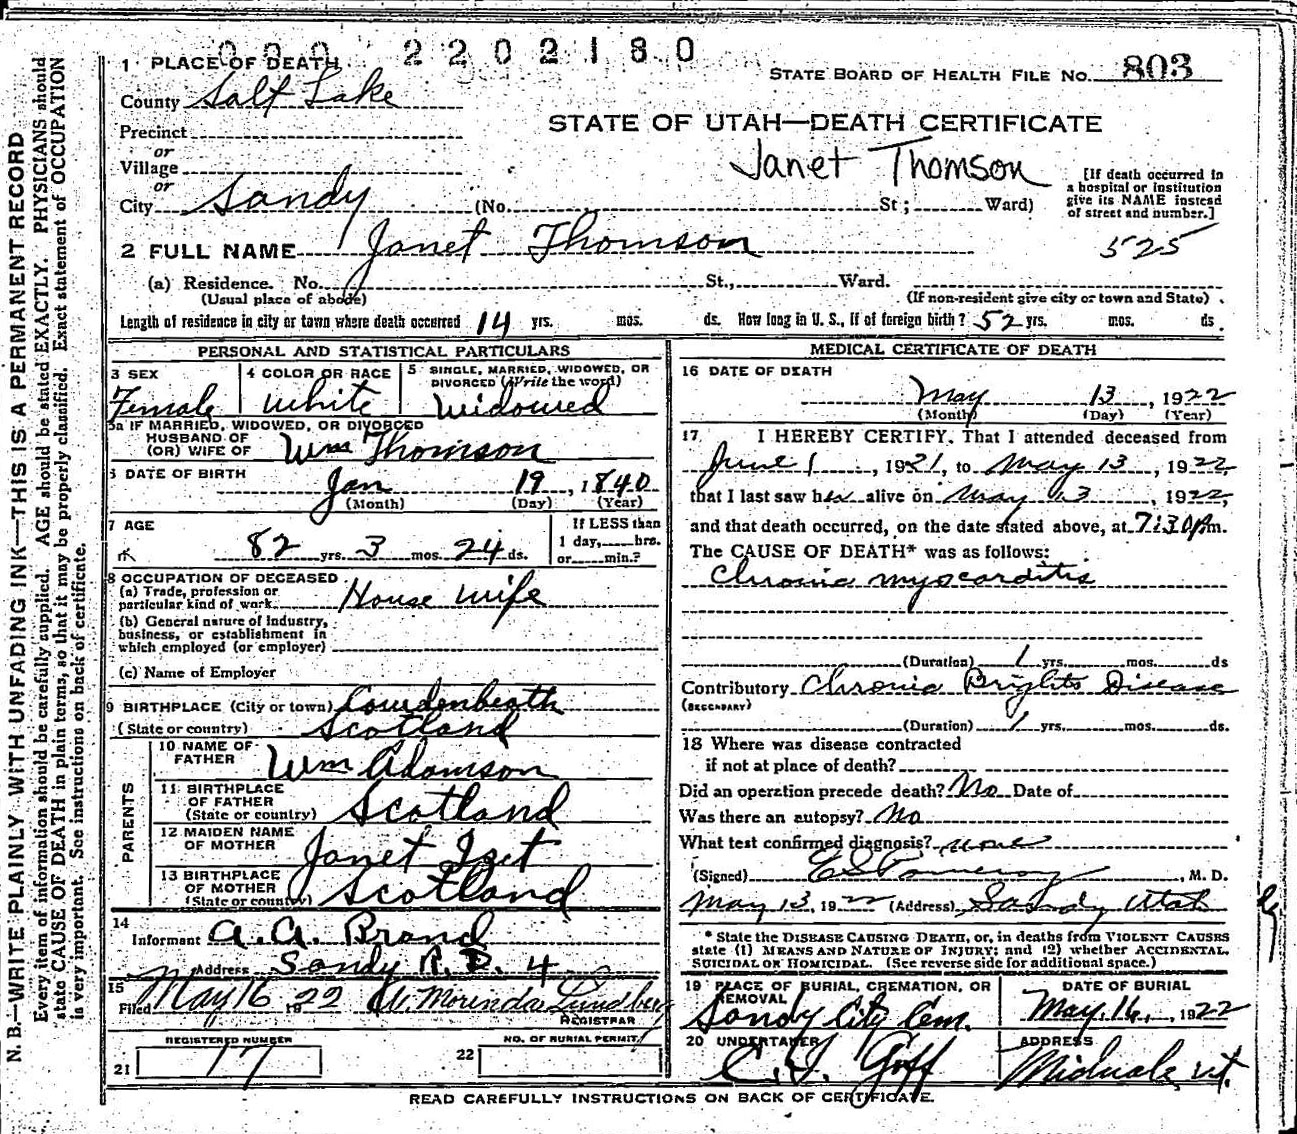 N. B.—WRITE PLAINLY WITH UNFADING INK—THIS IS A PERMANENT RECORD
Every item of information should be carefully supplied. AGE should be stated EXACTLY. PHYSICIANS should
state CAUSE OF DEATH in plain terms, so that it may be properly classified. Exact statement of OCCUPATION
is very important. See instructions on back of certificate.
0 0 0 2 2 0 2 1 8 0
1 PLACE OF DEATH
STATE BOARD OF HEALTH FILE NO. 803
County Salt Lake
STATE OF UTAH—DEATH CERTIFICATE
Precinct
or
Village
or
Janet Thomson
[If death occurred in
a hospital or institution
give its NAME instead
of street and number.]
City Sandy (No. St; Ward)
2 FULL NAME Janet Thomson 525
(a) Residence. No. St., Ward.
(Usual place of abode) (If non-resident give city or town and State)
Length of residence in city or town where death occurred 14 yrs. mos. ds. How long in U. S., if of foreign birth? 52 yrs. mos. ds
PERSONAL AND STATISTICAL PARTICULARS
3 SEX
Female
4 COLOR OR RACE
White
5 SINGLE, MARRIED, WIDOWED, OR
DIVORCED (Write the word)
Widowed
5a IF MARRIED, WIDOWED, OR DIVORCED
HUSBAND OF
(OR) WIFE OF Wm Thomson
6 DATE OF BIRTH
Jan 19, 1840
(Month) (Day) (Year)
7 AGE
82 yrs. 3 mos. 24 ds.
If LESS than
1 day, hrs.
or min.?
8 OCCUPATION OF DECEASED
(a) Trade, profession or
particular kind of work House Wife
(b) General nature of Industry,
business, or establishment in
which employed (or employer)
(c) Name of Employer
9 BIRTHPLACE (City or town) Cowdenbeath
(State or country) Scotland
PARENTS
10 NAME OF
FATHER Wm Adamson
11 BIRTHPLACE
OF FATHER
(State or country) Scotland
12 MAIDEN NAME
OF MOTHER Janet Izet
13 BIRTHPLACE
OF MOTHER
(State or country) Scotland
14
Informant A. A. Brand
Address Sandy R. D. 4
15
Filed May 16 1922 W. Morinda Lundberg
REGISTRAR
REGISTERED NUMBER
21 17
NO. OF BURIAL PERMIT
22
MEDICAL CERTIFICATE OF DEATH
16 DATE OF DEATH
May 13, 1922
(Month) (Day) (Year)
17 I HEREBY CERTIFY, That I attended deceased from
June 1, 1921, to May 13, 1922,
that I last saw her alive on May 13, 1922,
and that death occurred, on the date stated above, at 7:30 p.m.
The CAUSE OF DEATH* was as follows:
Chronic myocarditis
(Duration) 1 yrs. mos. ds
Contributory Chronic Brights Disease
(SECONDARY)
(Duration) 1 yrs. mos. ds.
18 Where was disease contracted
if not at place of death?
Did an operation precede death? No Date of
Was there an autopsy? No
What test confirmed diagnosis? none
(Signed) E S Pomeroy, M. D.
May 13, 1922 (Address) Sandy Utah
* State the DISEASE CAUSING DEATH, or, in deaths from VIOLENT CAUSES
state (1) MEANS AND NATURE OF INJURY; and (2) whether ACCIDENTAL,
SUICIDAL OR HOMICIDAL. (See reverse side for additional space.)
19 PLACE OF BURIAL, CREMATION, OR
REMOVAL
Sandy City Cem.
DATE OF BURIAL
May. 16, 1922
20 UNDERTAKER
C. J. Goff
ADDRESS
Midvale, Ut.
READ CAREFULLY INSTRUCTIONS ON BACK OF CERTIFICATE.